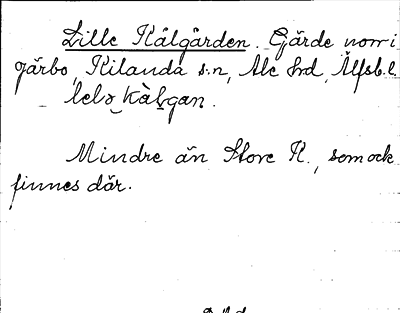 Lille Kålgården. Gärde norr i
gärbo, Kilanda s:n, Ale hd, Älfsb. l.
lelə kàlgan.
Mindre än Store K., som ock
finnes där.